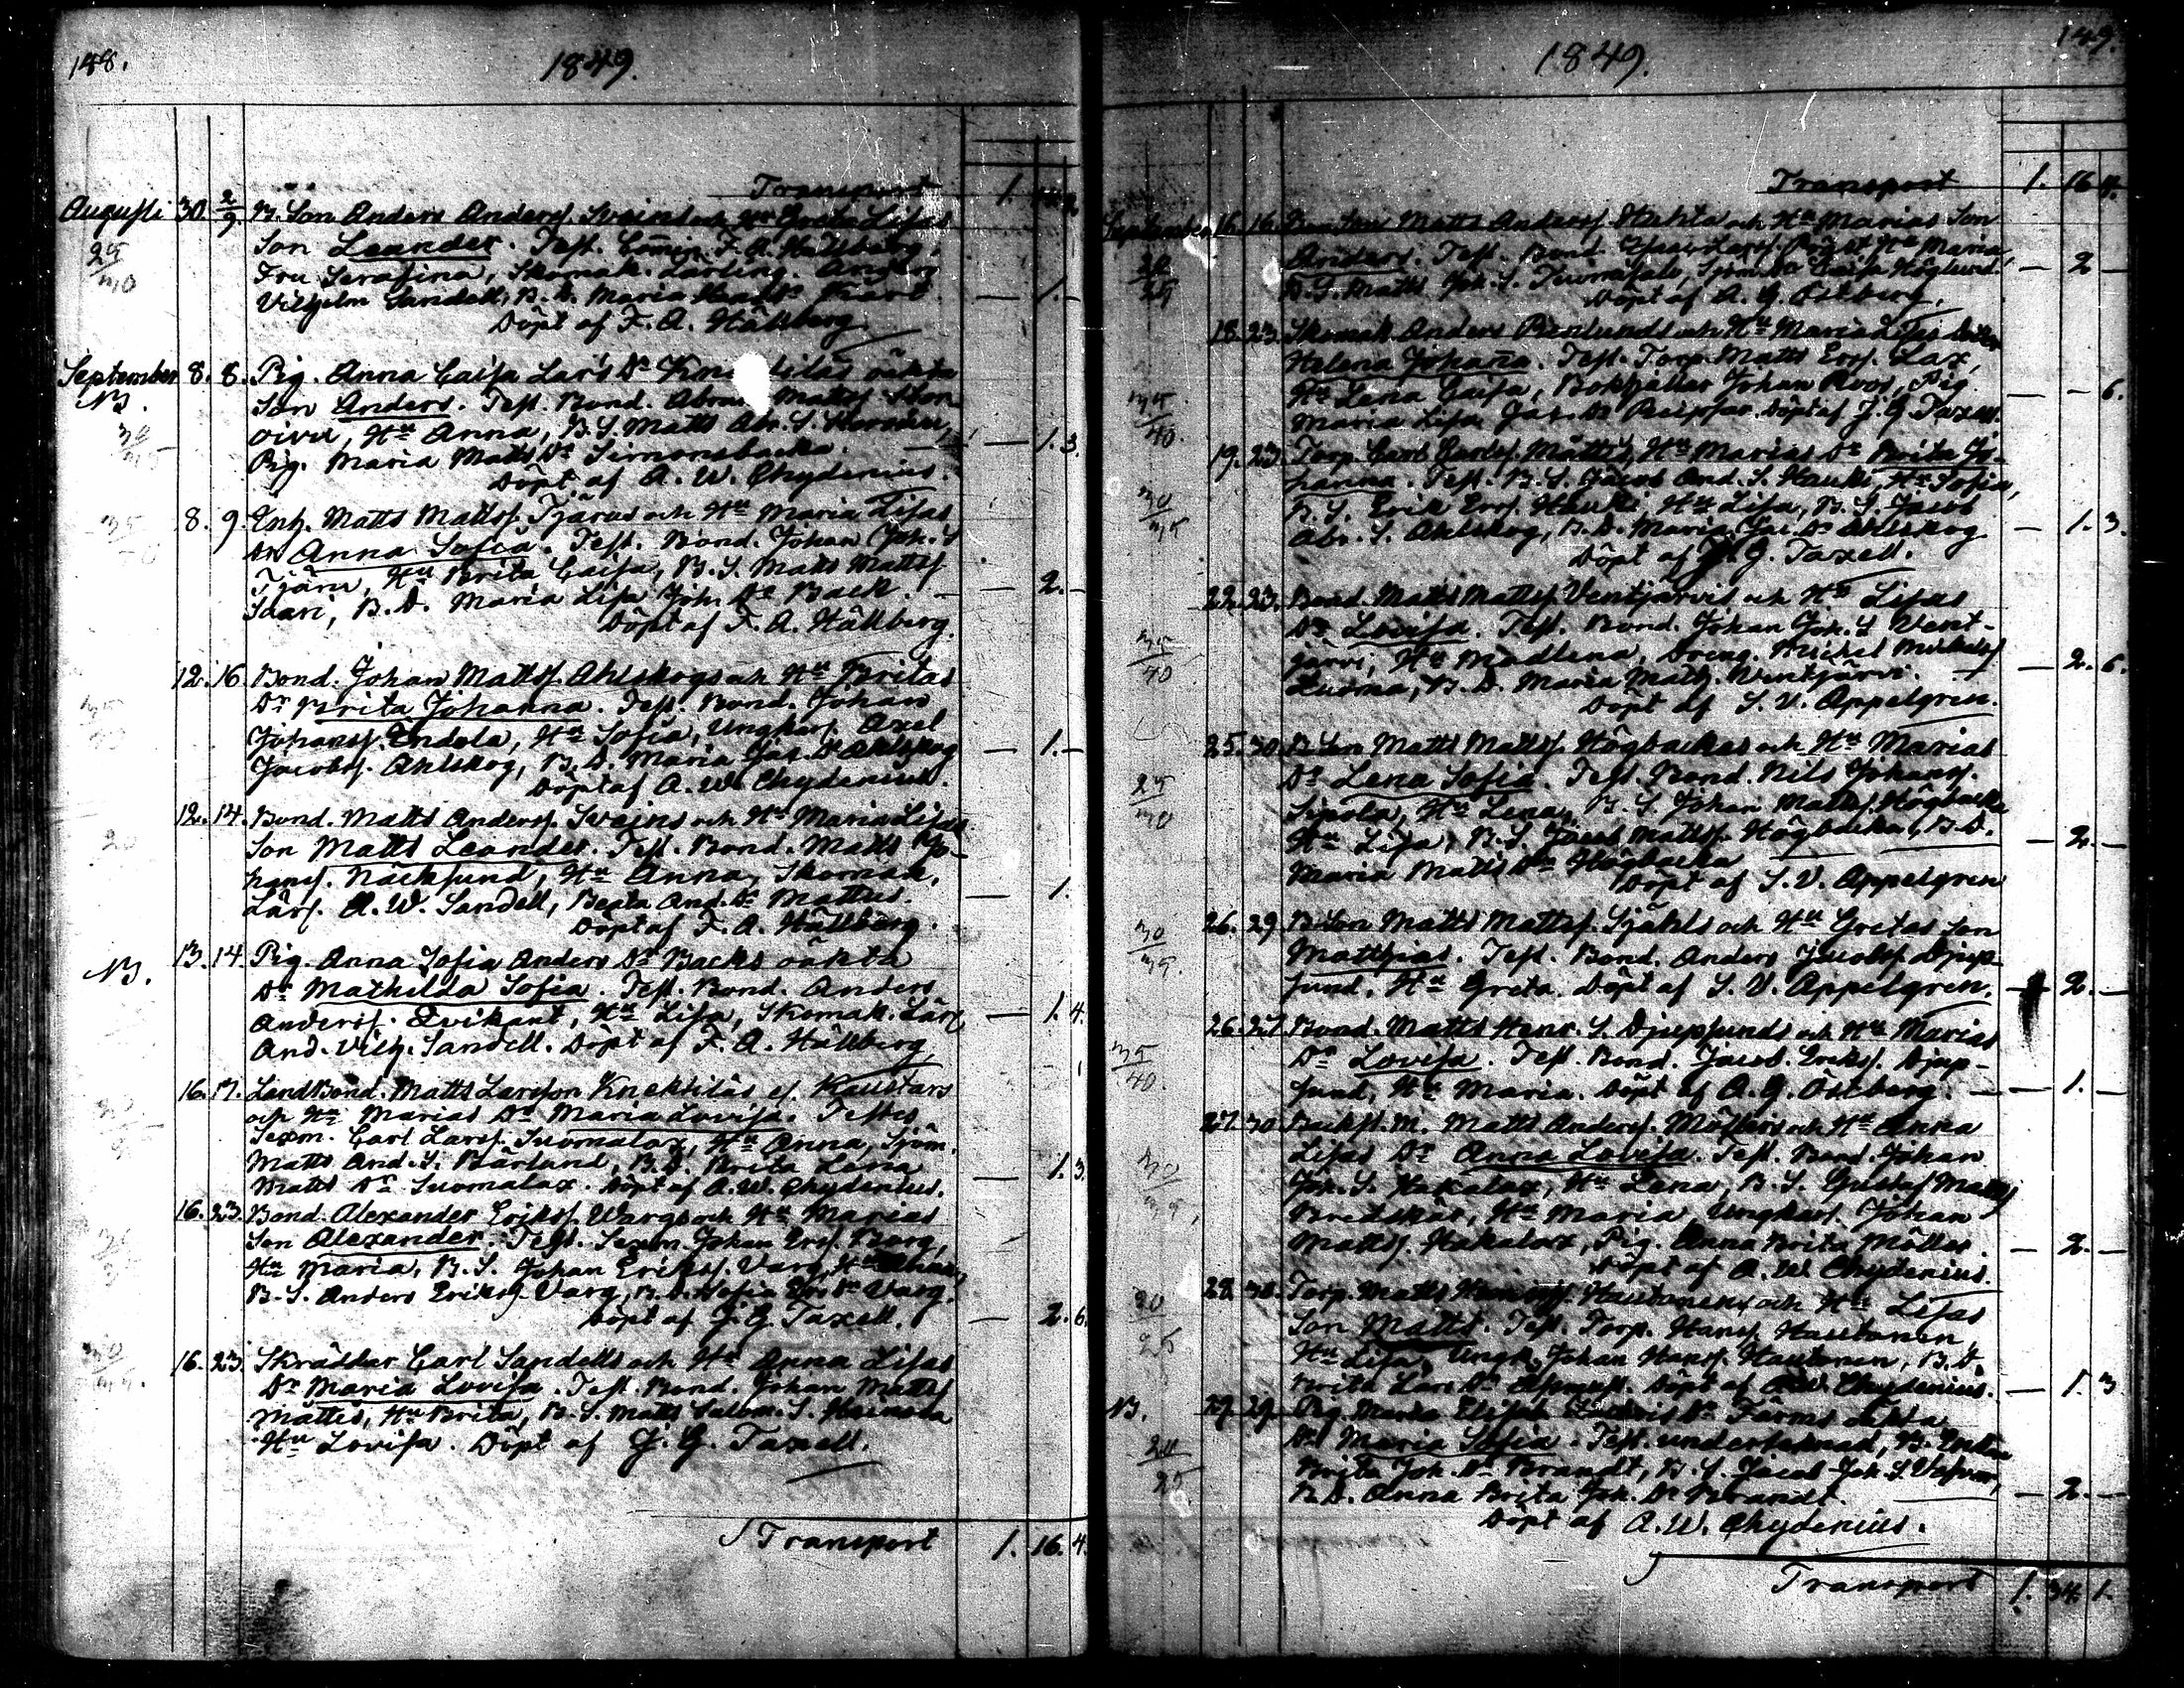 148.
1849.
Transport 1.
Augusti 30. 2/9. B. Son Anders Anderss. Sveins och Hu Greta Lisas
25/30
Son Leander. Test. F. A. Hällberg,
Fru Serafina, Skomak. Lärling. Anders
Vilhelm Sandell, B. D. Maria — 1. —
Döpt af F. A. Hällberg
September 8. 8. Pig. Anna Caisa Lars Dr oäkta
N.
Son Anders. Test. Bond. Abra Matts. Stor-
oivu, Hu Anna, B. S. Matts Abr. S. Storoivu,
Pig. Maria Matts Dr Simonsbacka. — 1. 3.
Döpt af A. W. Chydenius.
8. 9. Inh. Matts Matts. Tjärus och Hu Maria Lisas
Dr Anna Sofia. Test. Bond. Johan Joh. S.
Tjäru, Hu Brita Caisa, B. S. Matts Matts.
Saari, B. D. Maria Lisa Joh. Dr Back. — 2. —
Döpt af F. A. Hällberg.
12. 16. Bond. Johan Matts. Ahlskogs och Hu Britas
Dr Brita Johanna. Test. Bond. Johan
Johanss. Indola, Hu Sofia, Ungkarl. Axel
Jacobs. Ahlskog, B. D. Maria Jac. Dr Ahlskog — 1. —
Döpt af A. W. Chydenius.
12. 14. Bond. Matts Anderss. Sveins och Hu Maria Lisas
Son Matts Leander. Test. Bond. Matts Jo-
hans. Näcksund, Hu Anna, Skomak.
Lärl. A. W. Sandell, Beata And. Dr Mattus. — 1.
Döpt af F. A. Hällberg.
N. 13. 14. Pig. Anna Sofia Anders Dr Backs oäkta
Dr Mathilda Sofia. Test. Bond. Anders
Anderss. Evikant, Hu Lisa, Skomak. Lärl. — 1. 4.
And. Vilh. Sandell. Döpt af F. A. Hällberg.
16. 17. LandBond. Matts Larsson Knektilas el. Kaustars
och Hu Marias Dr Maria Lovisa. Testes
Sexm. Carl Larss. Suomalax, Hu Anna, Sjöm.
Matts And. S. Bärlund, B. D. Brita Lena
Matts Dr Suomalax. Döpt af A. W. Chydenius. — 1. 3.
16. 23. Bond. Alexander Erikss. Wargs och Hu Marias
Son Alexander. Test. Sexm. Johan Ers. Borg,
Hu Maria, B. S. Johan Erikss. Varg, Hu
B. S. Anders Erikss. Varg, B. D. Sofia Ers Dr Varg.
Döpt af J. G. Taxell. — 2. 6.
16. 23. Skräddar Carl Sandells och Hu Anna Lisas
Dr Maria Lovisa. Test. Bond. Johan Matts.
Mattus, Hu Brita, B. S. Matts Salom. S.
Hu Lovisa. Döpt af J. G. Taxell.
Transport 1. 16. 4.
149.
1849.
Transport 1. 16. 4.
September 16. 16. Matts Anderss. och Hu Marias Son
Anders. Test. Bond. Hu Maria,
B. S. Matts Joh. S. Caisa Höglund. — 2 —
Döpt af A. G. Östberg.
18. 23. Skomak. Anders och Hu Marias Dotter
Helena Johanna. Test. Torp. Matts Ers. Lax,
Hu Lena Caisa, Bokhållar Johan Roos, Pig.
Maria Lisa Jac. Dr Döpt af J. G. Taxell. — — 6.
35/40.
19. 23. Torp. Carl Carls. Mattus, Hu Marias Dr Brita Jo-
hanna. Test. B. S. Jacob And. S. Hauki, Hu Sofia,
30/35
B. S. Erik Ers. Hauki, Hu Lisa, B. S. Jacob
Abr. S. Ahlskog, B. D. Maria Jac. Dr Ahlskog — 1. 3.
Döpt af J. G. Taxell.
22. 23. Bond. Matts Matts. Ventjärvis och Hu Lisas
Dr Lovisa. Test. Bond. Johan Joh. S. Vent-
35/40
järvi, Hu Madlena, Dreng. Michel Mickels.
Luoma, B. D. Maria Matts. Ventjärvi. — 2. 6.
Döpt af S. V. Appelgren.
25. 30. B. Son Matts Matts. Högbackas och Hu Marias
25/30
Dr Lena Sofia. Test. Bond. Nils Johans.
Sipola, Hu Lena, B. S. Johan Matts. Högbacka
Hu Lisa, B. S. Jacob Matts. Högbacka, B. D. — 2. —
Maria Matts Dr Högbacka
Döpt af S. V. Appelgren
26. 29. B. Son Matts Matts. Själös och Hu Gretas Son
30/35.
Matthias. Test. Bond. Anders Jacobs. Djup-
sund, Hu Greta. Döpt af S. V. Appelgren. 2. —
26. 27. Bond. Matts Henr. S. Djupsunds och Hu Marias
35/40.
Dr Lovisa. Test. Bond. Jacob Erikss. Djup-
sund, Hu Maria. Döpt af A. G. Östberg. — 1. —
27. 30. Backst. M. Matts Anderss. Möllers och Hu Anna
Lisas Dr Anna Lovisa. Test. Bond. Johan
30/35,
Joh. S. Kakalax, Hu Lena, B. S. Gustaf Matts.
Bredskar, Hu Maria, Ungkarl. Johan
Matts. Kakalax, Pig. Anna Brita Möller. — 2. —
Döpt af A. W. Chydenius.
28. 30. Torp. Matts Hautanens och Hu Lisas
20/25
Son Matts. Test. Torp. Hans. Hautanen,
Hu Lisa, Ungk. Johan Hanss. Hautanen, B. D.
Brita Lars Dr Döpt af A. W. Chydenius. — 1. 3.
N. 29. 29. Pig. Maria Dr oäkta
Dr Maria Sofia. Test. undertecknad,
24/25
Brita Joh. Dr Brandt, B. S. Jacob Joh. S.
B. D. Anna Brita Joh. Dr Brandt. — 2. —
Döpt af A. W. Chydenius.
Transport 1. 34. 1.